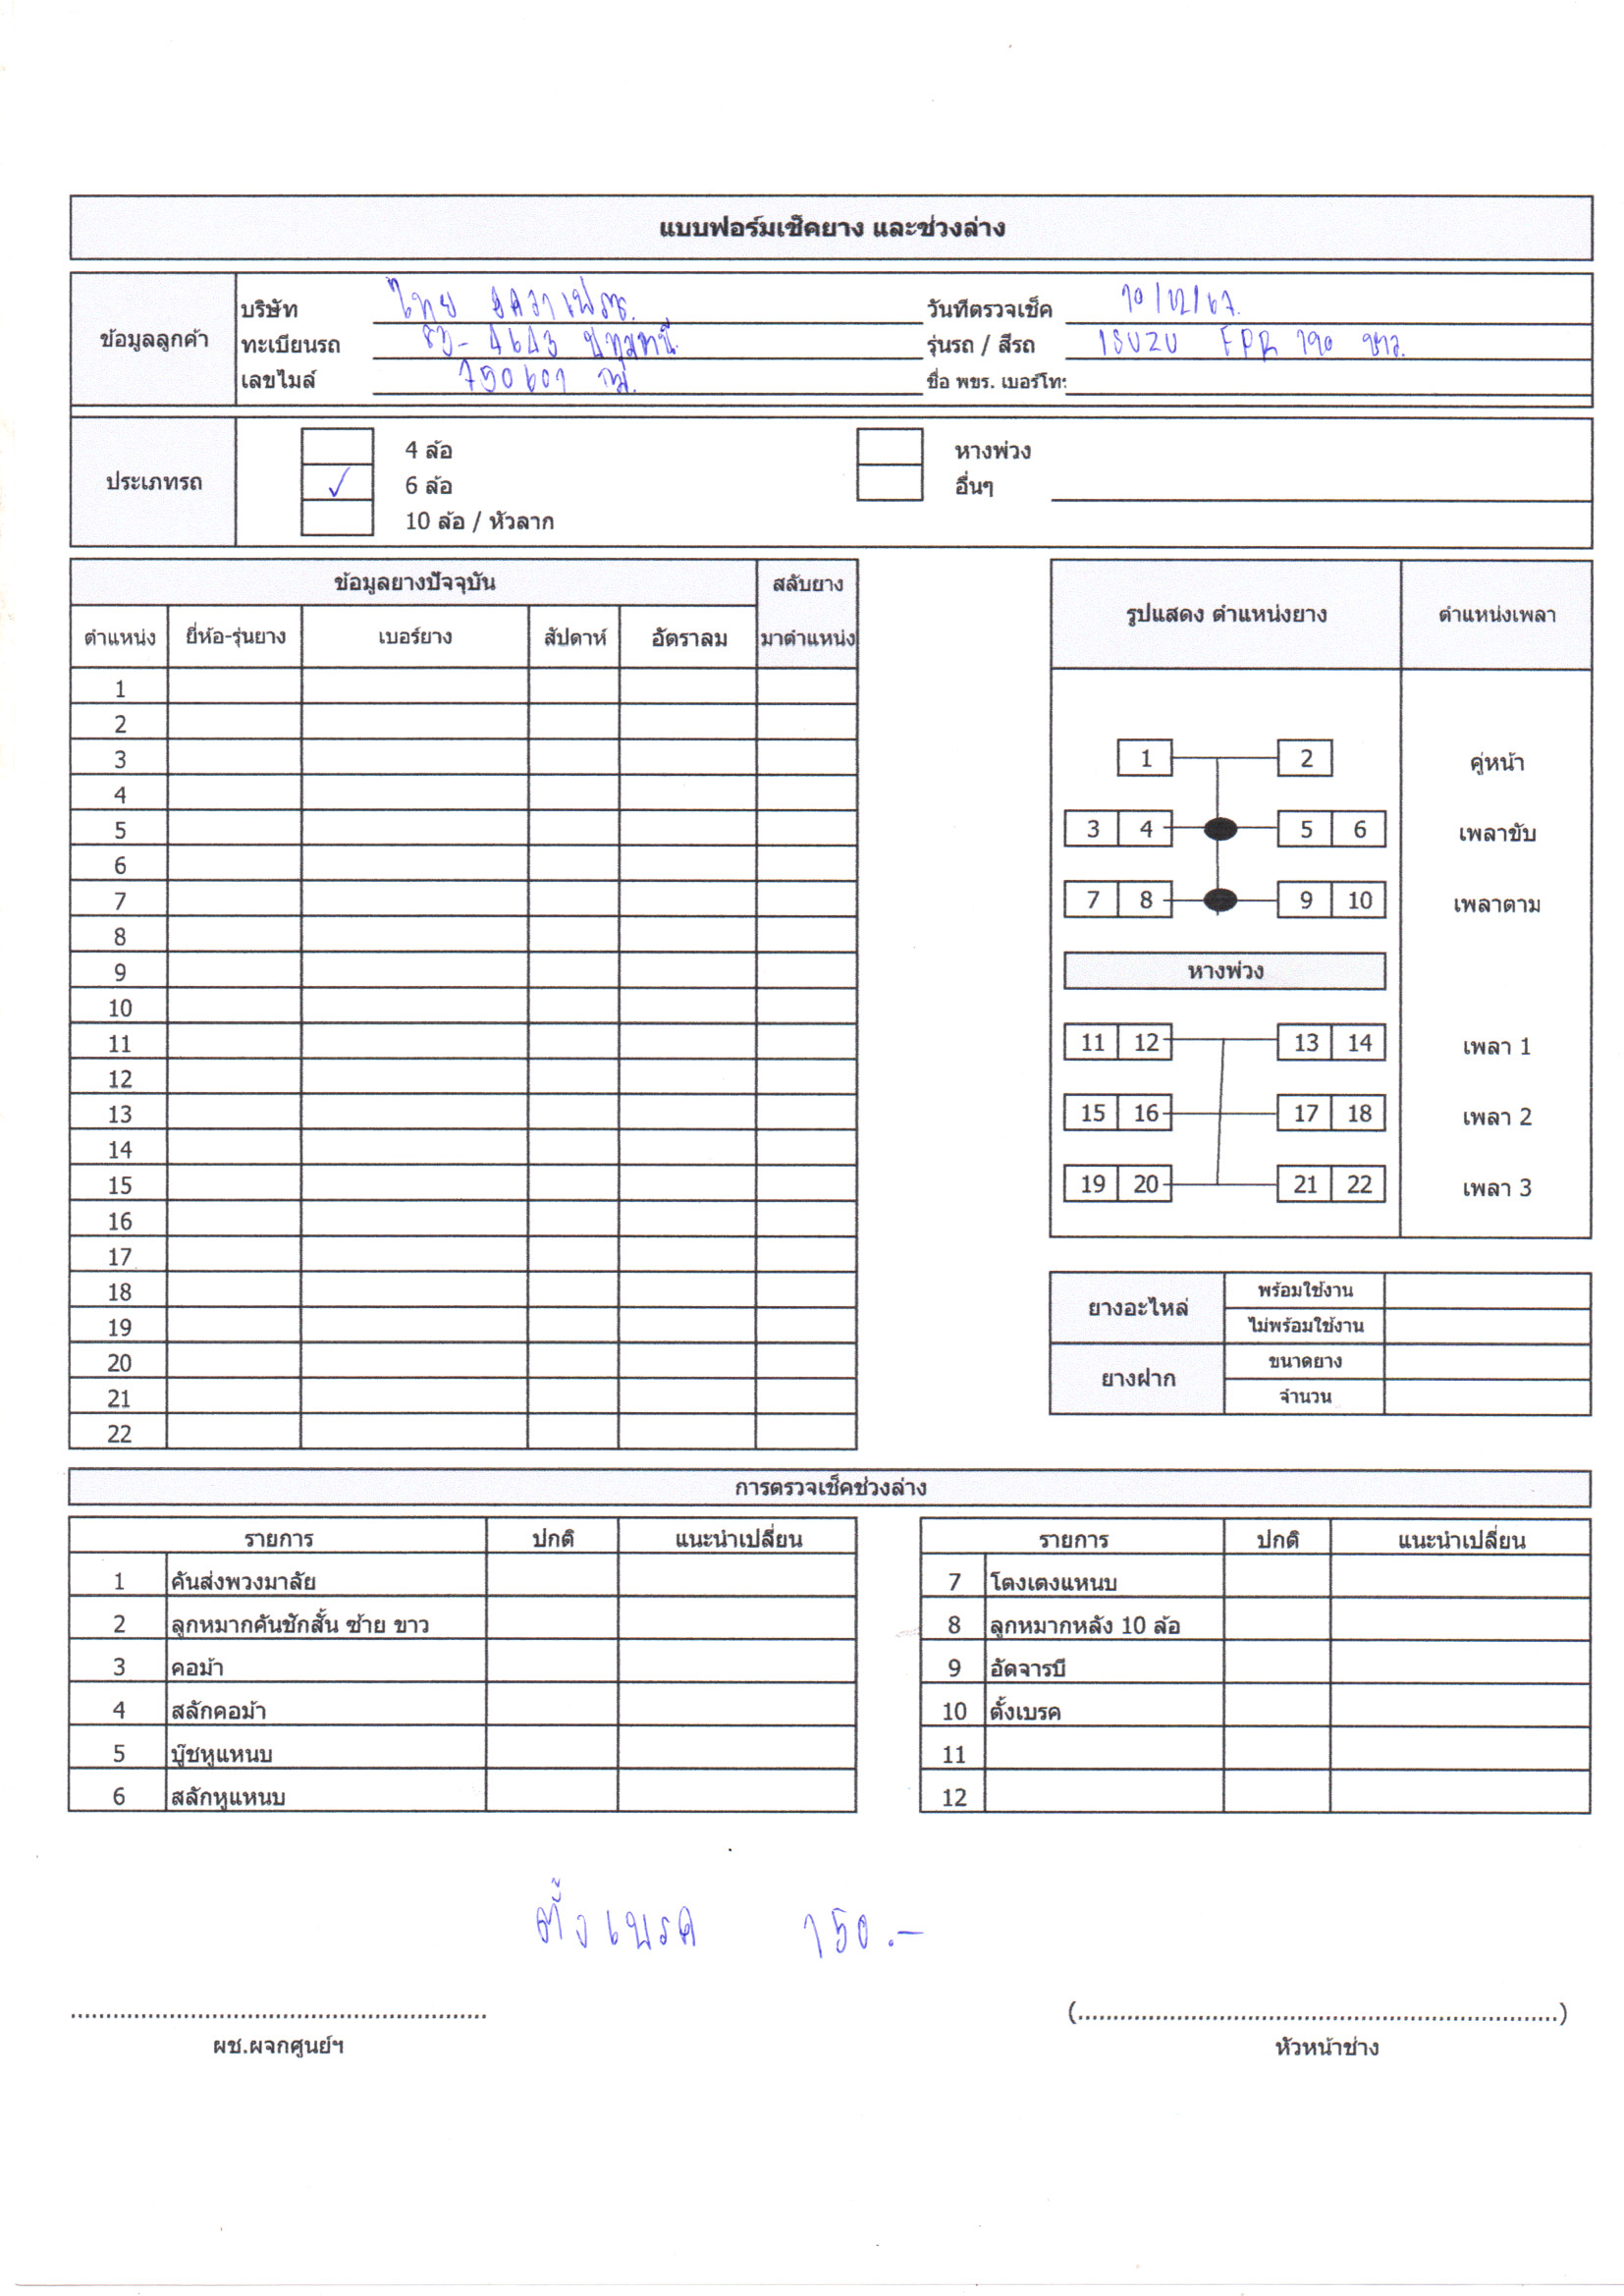 แบบฟอร์มเช็คยาง และช่วงล่าง
ข้อมูลลูกค้า
บริษัท ไทย วันที่ตรวจเช็ค 10/12/67.
ทะเบียนรถ รุ่นรถ / สีรถ ISUZU 190 ขาว.
เลขไมล์ 750601 กม. ชื่อ พขร. เบอร์โทร
ประเภทรถ
4 ล้อ หางพ่วง
✓ 6 ล้อ อื่นๆ
10 ล้อ / หัวลาก
ข้อมูลยางปัจจุบัน สลับยาง
ตำแหน่ง ยี่ห้อ-รุ่นยาง เบอร์ยาง สัปดาห์ อัตราลม มาตำแหน่ง
1
2
3
4
5
6
7
8
9
10
11
12
13
14
15
16
17
18
19
20
21
22
รูปแสดง ตำแหน่งยาง ตำแหน่งเพลา
1 2 คู่หน้า
3 4 5 6 เพลาขับ
7 8 9 10 เพลาตาม
หางพ่วง
11 12 13 14 เพลา 1
15 16 17 18 เพลา 2
19 20 21 22 เพลา 3
ยางอะไหล่ พร้อมใช้งาน
ไม่พร้อมใช้งาน
ยางฝาก ขนาดยาง
จำนวน
การตรวจเช็คช่วงล่าง
รายการ ปกติ แนะนำเปลี่ยน
1 คันส่งพวงมาลัย
2 ลูกหมากคันชักสั้น ซ้าย ขาว
3 คอม้า
4 สลักคอม้า
5 บู๊ชหูแหนบ
6 สลักหูแหนบ
รายการ ปกติ แนะนำเปลี่ยน
7 โตงเตงแหนบ
8 ลูกหมากหลัง 10 ล้อ
9 อัดจารบี
10 ตั้งเบรค
11
12
ตั้งเบรค 150.-
(....................)
ผช.ผจกศูนย์ฯ หัวหน้าช่าง